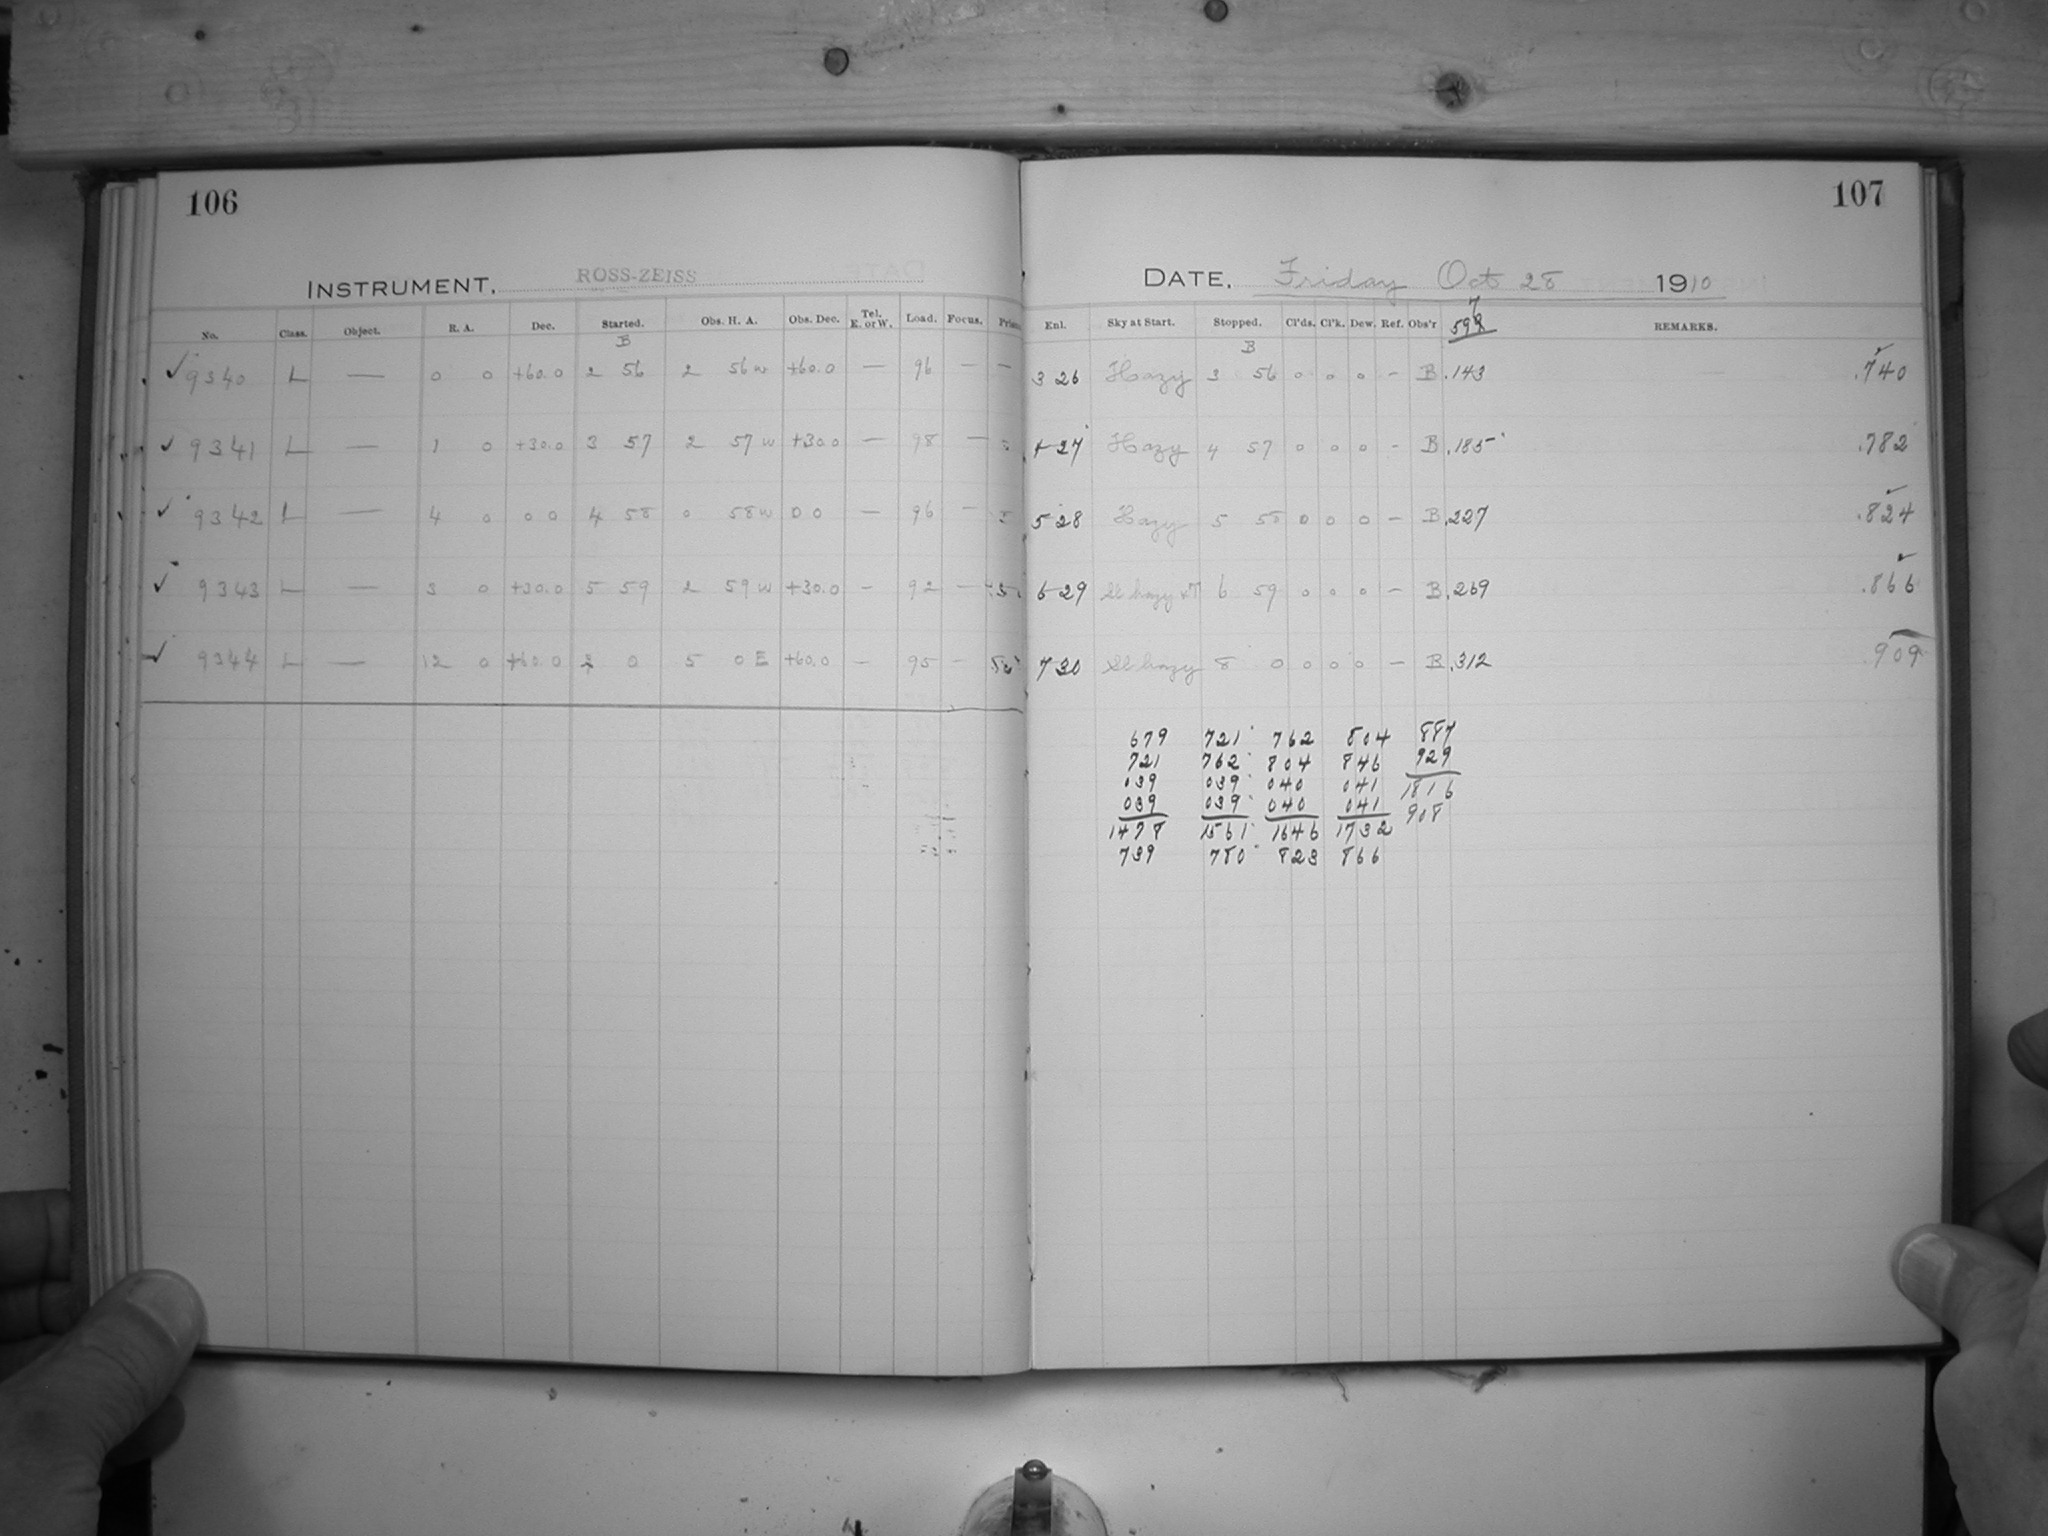 106
INSTRUMENT, ROSS-ZEISS
No. Class. Object. R. A. Dec. Started. Obs. H. A. Obs. Dec. Tel. E. or W. Load. Focus.
B
✓ 9340 L — 0 0 +60.0 2 56 2 56 w +60.0 — 96 — —
✓ 9341 L — 1 0 +30.0 3 57 2 57 w +30.0 — 98 —
✓ 9342 L — 4 0 0 0 4 58 0 58 w 0 0 — 96 —
✓ 9343 L — 3 0 +30.0 5 59 2 59 w +30.0 — 92 —
✓ 9344 L — 12 0 +60.0 0 5 0 E +60.0 — 95 —
107
DATE, Friday Oct 28 1910
Enl. Sky at Start. Stopped. Cl'ds. Cl'k. Dew. Ref. Obs'r 7 598 REMARKS.
B
3 26 Hazy 3 56 0 0 0 – B .143 .740
4 27 Hazy 4 57 0 0 0 – B .185 .782
5 28 Hazy 5 58 0 0 0 – B .227 .824
6 29 Sl hazy 6 59 0 0 0 – B .269 .866
7 30 Sl hazy 8 0 0 0 0 – B .312 .909
679 721 762 804 887
721 762 804 846 929
039 039 040 041 1816
039 039 040 041 908
1478 1561 1646 1732
739 780 823 866